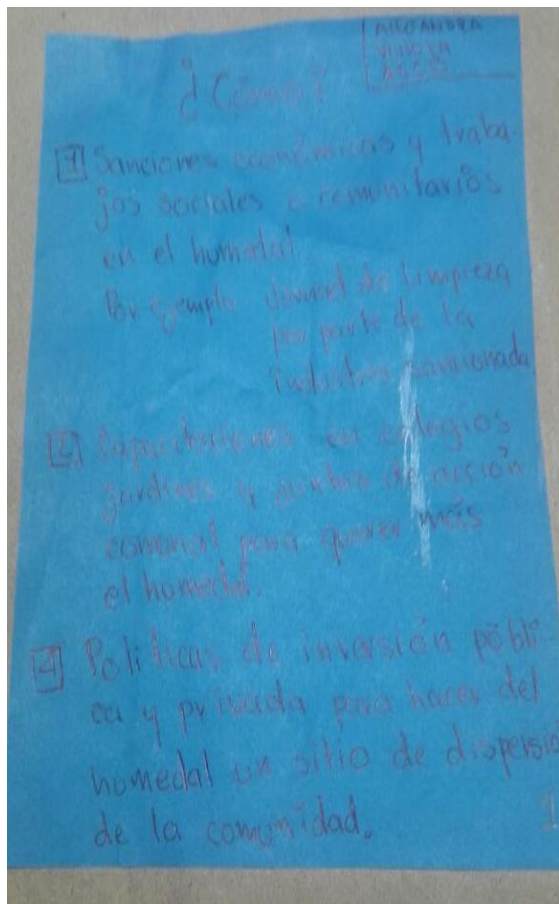 ALEJANDRA
¿Cómo?
1 Sanciones económicas y traba-
jos sociales o comunitarios
en el humedal.
Por ejemplo Jornad de limpieza
por parte de la
industria sancionada.
2 Capacitaciones en colegios
jardines y juntas de acción
comunal para querer más
el humedal.
4 Politicas de inversión públi
ca y privada para hacer del
humedal un sitio de dispersió
de la comunidad.
1